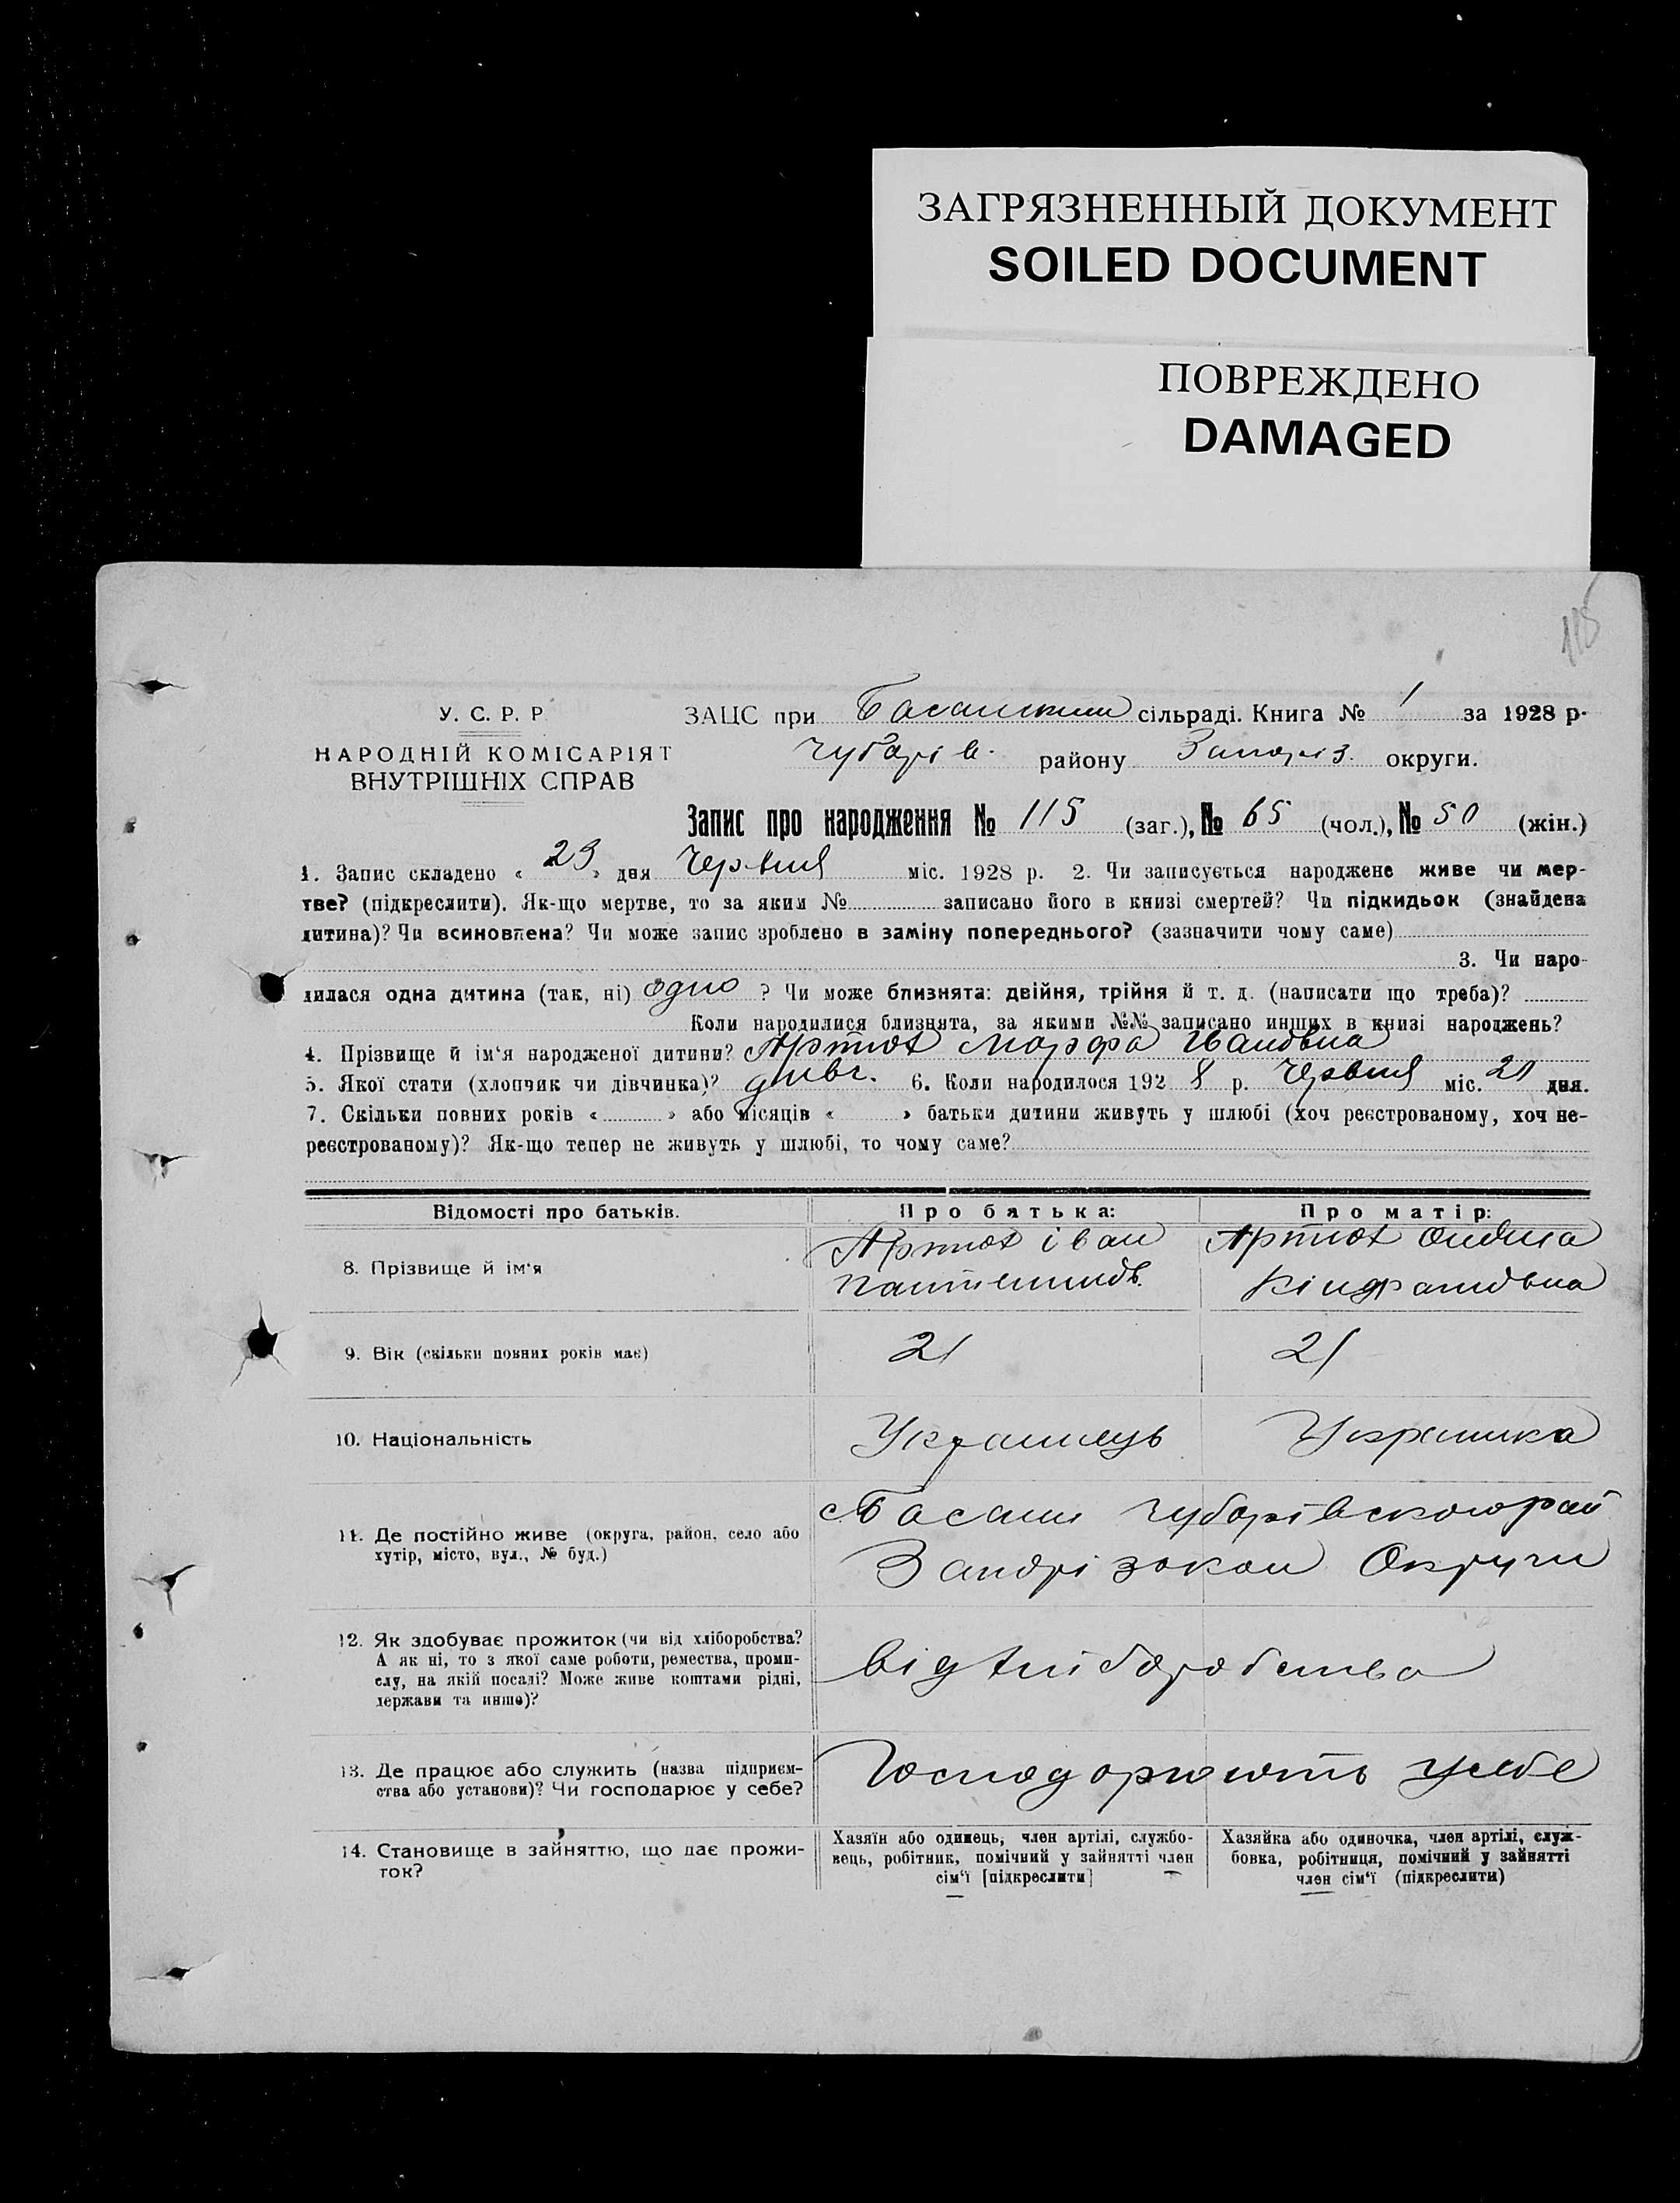 ЗАГРЯЗНЕННЫЙ ДОКУМЕНТ
SOILED DOCUMENT
ПОВРЕЖДЕНО
DAMAGED
115
У. С. Р. Р
НАРОДНІЙ КОМІСАРІЯТ
ВНУТРІШНІХ СПРАВ
ЗАЦС при Басанским сільраді. Книга № 1 за 1928 р.
Чубарів. району Запоріз. округи.
Запис про народження № 115 (заг.), № 65 (чол.), № 50 (жін.)
1. Запис складено « 23 » дня Червня міс. 1928 р. 2. Чи записується народжене живе чи мер-
тве? (підкреслити). Як-що мертве, то за яким № записано його в книзі смертей? Чи підкидьок (знайдена
дитина)? Чи всиновлена? Чи може запис зроблено в заміну попереднього? (зазначити чому саме)
3. Чи наро-
дилася одна дитина (так, ні) одно ? Чи може близнята: двійня, трійня й т. д. (написати що треба)?
Коли народилися близнята, за якими №№ записано инших в книзі народжень?
4. Прізвище й ім'я народженої дитини? Артюх Марфа Ивановна
5. Якої стати (хлопчик чи дівчинка)? дивч. 6. Коли народилося 192 8 р. Червня міс. 20 дня.
7. Скільки повних років « » або місяців « » батьки дитини живуть у шлюбі (хоч реєстрованому, хоч не-
реєстрованому)? Як-що тепер не живуть у шлюбі, то чому саме?
Відомості про батьків. Про батька: Про матір:
8. Прізвище й ім'я
Артюх іван
Артюх
Кіндратовна
9. Вік (скільки повних років має) 21 21
10. Національність Українець Українка
11. Де постійно живе (округа, район, село або
хутір, місто, вул., № буд.)
с Басань Чубарівского рай
Запорізкои Округи
12. Як здобуває прожиток (чи від хліборобства?
А як ні, то з якої саме роботи, ремества, проми-
слу, на якій посаді? Може живе коштами рідні,
держави та инше)?
від хліборобства
13. Де працює або служить (назва підприєм-
ства або установи)? Чи господарює у себе?
Господорюють усебе
14. Становище в зайняттю, що дає прожи-
ток?
Хазяїн або одинець, член артілі, службо-
вець, робітник, помічний у зайнятті член
сім'ї [підкреслити]
Хазяйка або одиночка, член артілі, служ-
бовка, робітниця, помічний у зайнятті
член сім'ї (підкреслити)